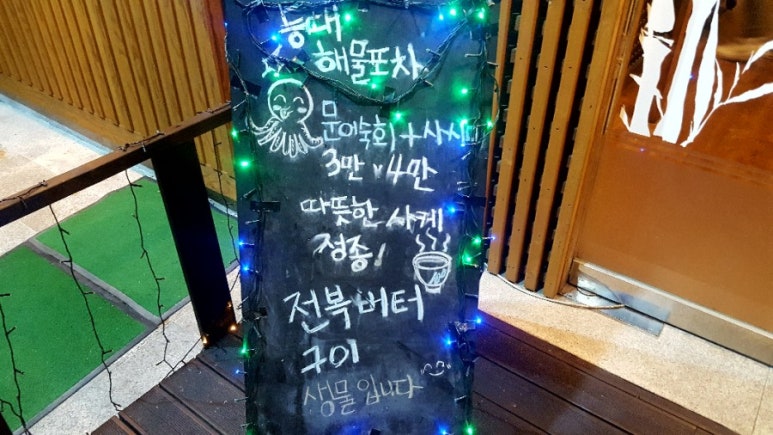 능대
해물포차
문어숙회+사시미
3만 v 4만
따뜻한 사케
정종!
전복버터
구이
생물입니다